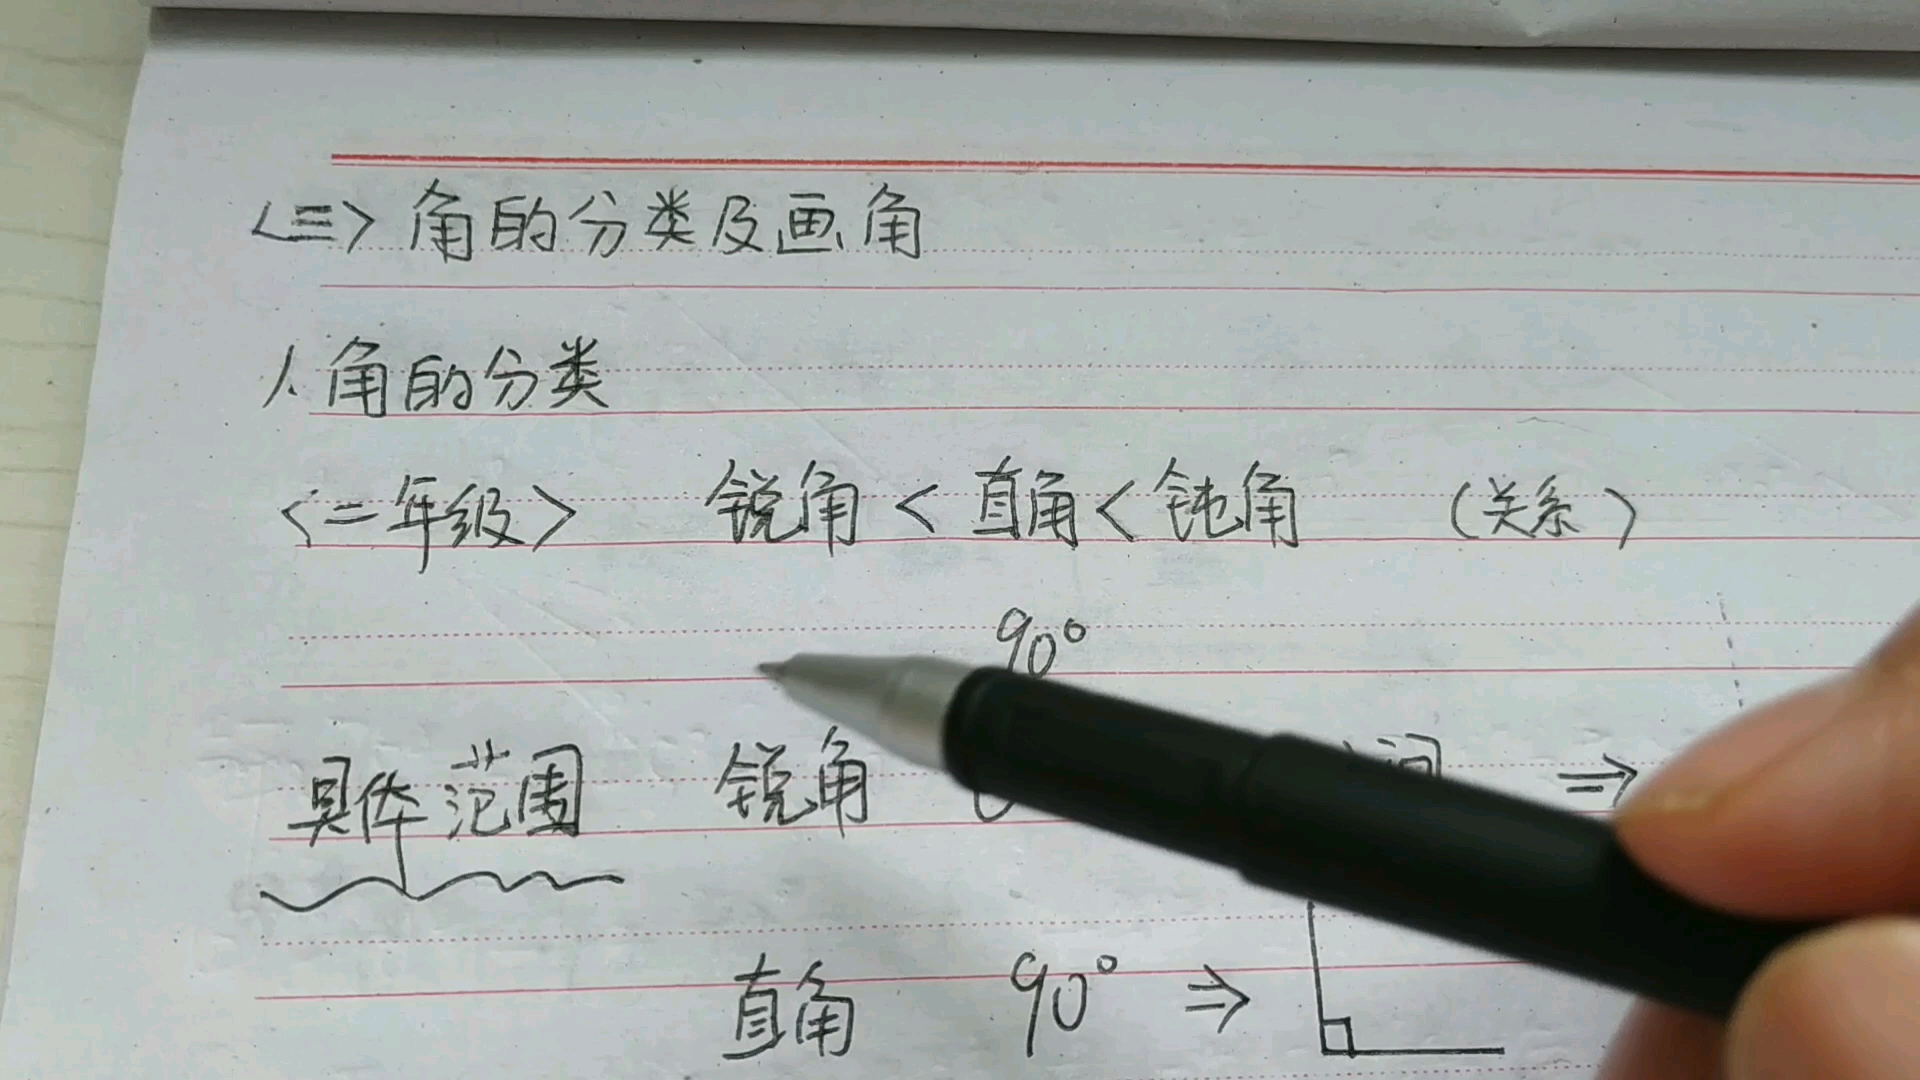 <三>角的分类及画角
1.角的分类
<二年级> 锐角<直角<钝角 (关系)
90°
具体范围 锐角 间 ⇒
直角 90° ⇒